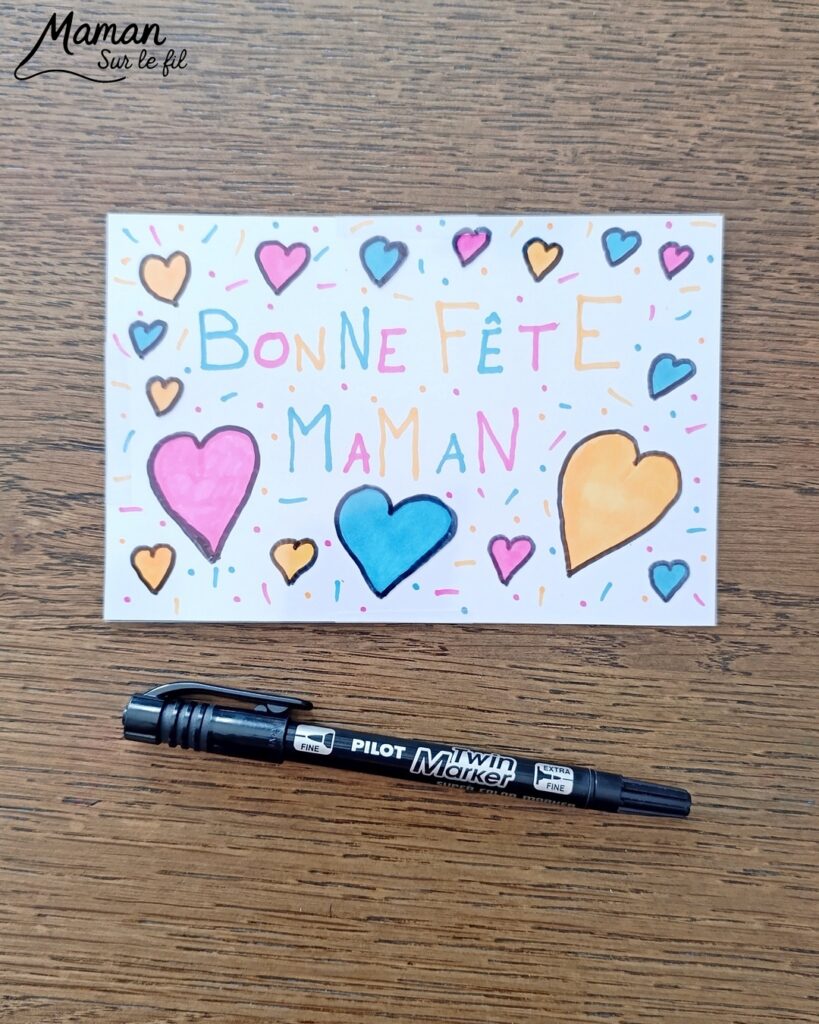 Maman
Sur le fil
BONNE FÊTE
MAMAN
FINE PILOT Twin Marker EXTRA FINE
SUPER COLOR MARKER